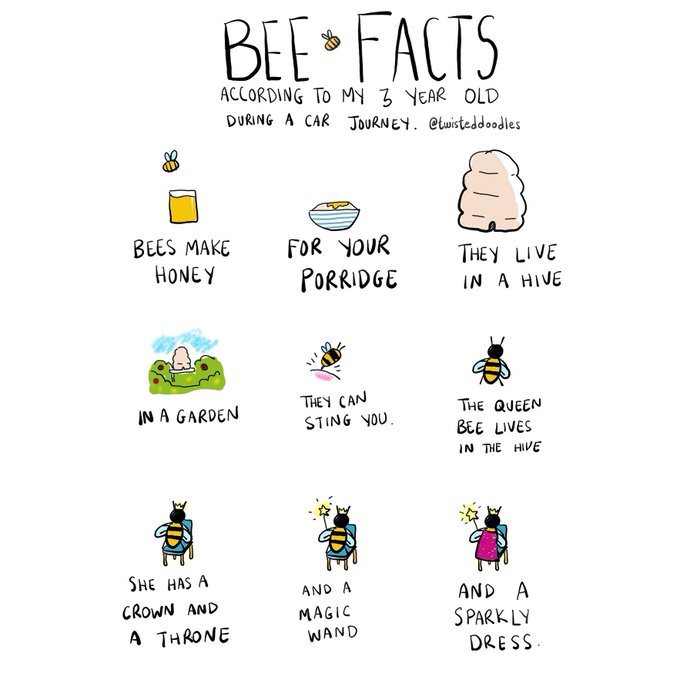 BEE FACTS
ACCORDING TO MY 3 YEAR OLD
DURING A CAR JOURNEY. @twisteddoodles
BEES MAKE
HONEY
FOR YOUR
PORRIDGE
THEY LIVE
IN A HIVE
IN A GARDEN
THEY CAN
STING YOU.
THE QUEEN
BEE LIVES
IN THE HIVE
SHE HAS A
CROWN AND
A THRONE
AND A
MAGIC
WAND
AND A
SPARKLY
DRESS.